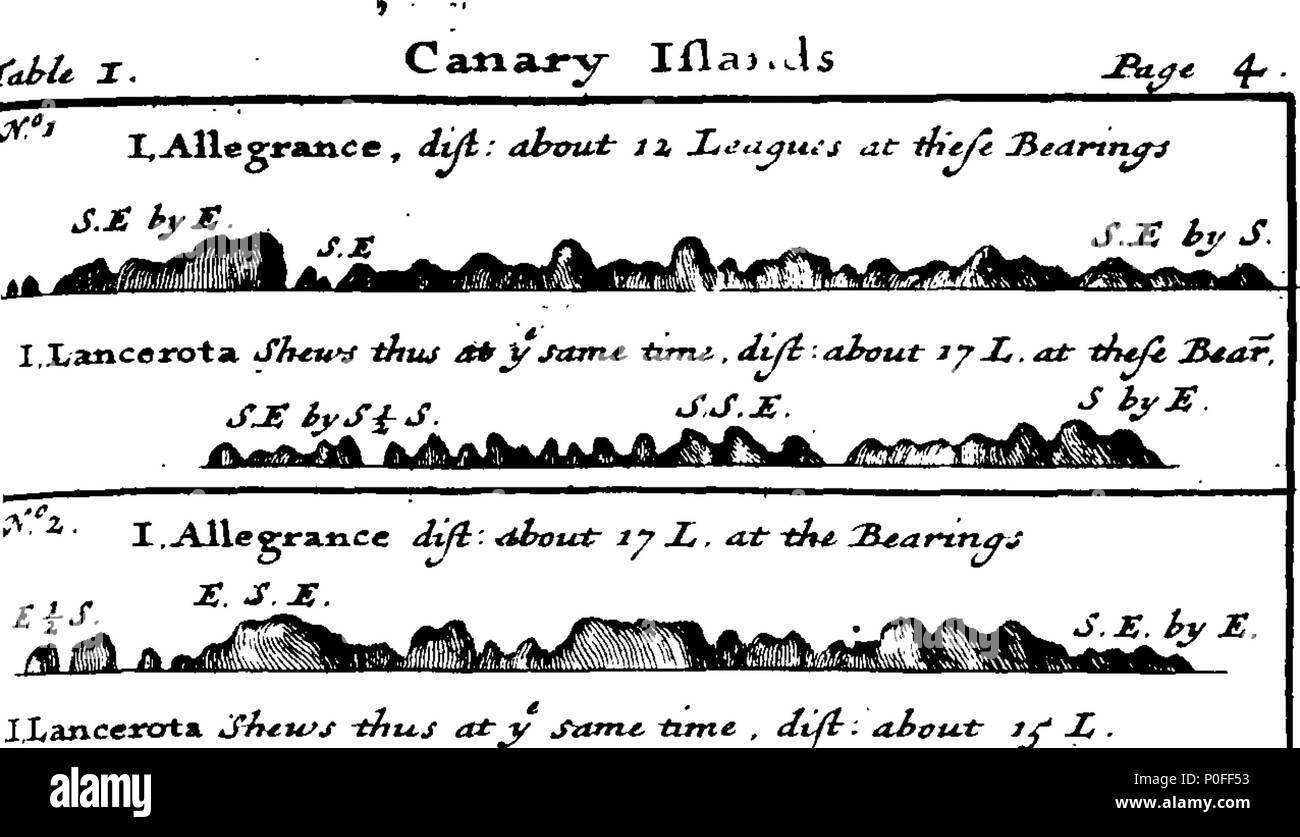 Table 1. Canary Iſlands Page 4.
N.º1
I, Allegrance, diſt: about 12 Leagues at theſe Bearings
S.E by E. S.E S.E by S.
I, Lancerota Shews thus at yᵉ same time, diſt: about 17 L. at theſe Bear̅.
S.E by S ½ S. S.S.E. S by E.
N.º2. I, Allegrance diſt: about 17 L. at the Bearings
E ½ S. E. S. E. S. E. by E.
I, Lancerota Shews thus at yᵉ same time, diſt: about 15 L.
a alamy stock photo
alamy
P0FF53
www.alamy.com